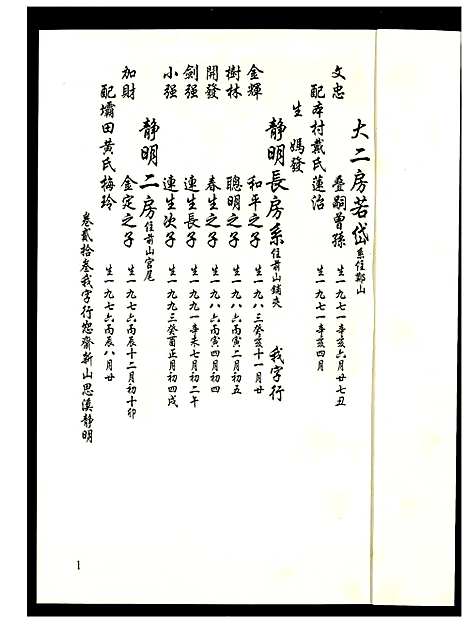 大二房若岱系住鄰山
文忠 疊嗣曾孫 生一九七一辛亥六月廿七丑
配本村戴氏蓮治 生一九七一辛亥四月
生 媽發
靜明長房系住前山鋪夾 我字行
金輝 和平之子 生一九八三癸亥十一月廿
樹林 聰明之子 生一九八六丙寅二月初五
開發 春生之子 生一九八六丙寅四月初四
劍强 連生長子 生一九九一辛未七月初二午
小强 連生次子 生一九九三癸酉正月初四戌
靜明二房住前山宮尾
加財 金定之子 生一九七六丙辰十二月初十卯
配壩田黃氏梅玲 生一九七六丙辰八月廿
卷貳拾叁我字行忽齋新山思溪靜明
1